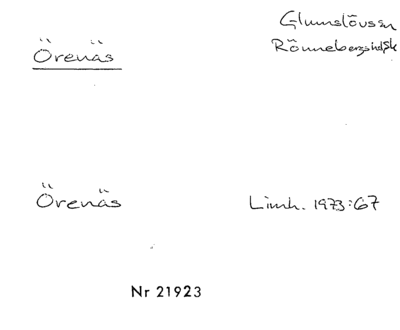 Örenäs
Glumslövs sn
Rönnebergs hd, Sk
Örenäs
Limh. 1973:67
Nr 21923